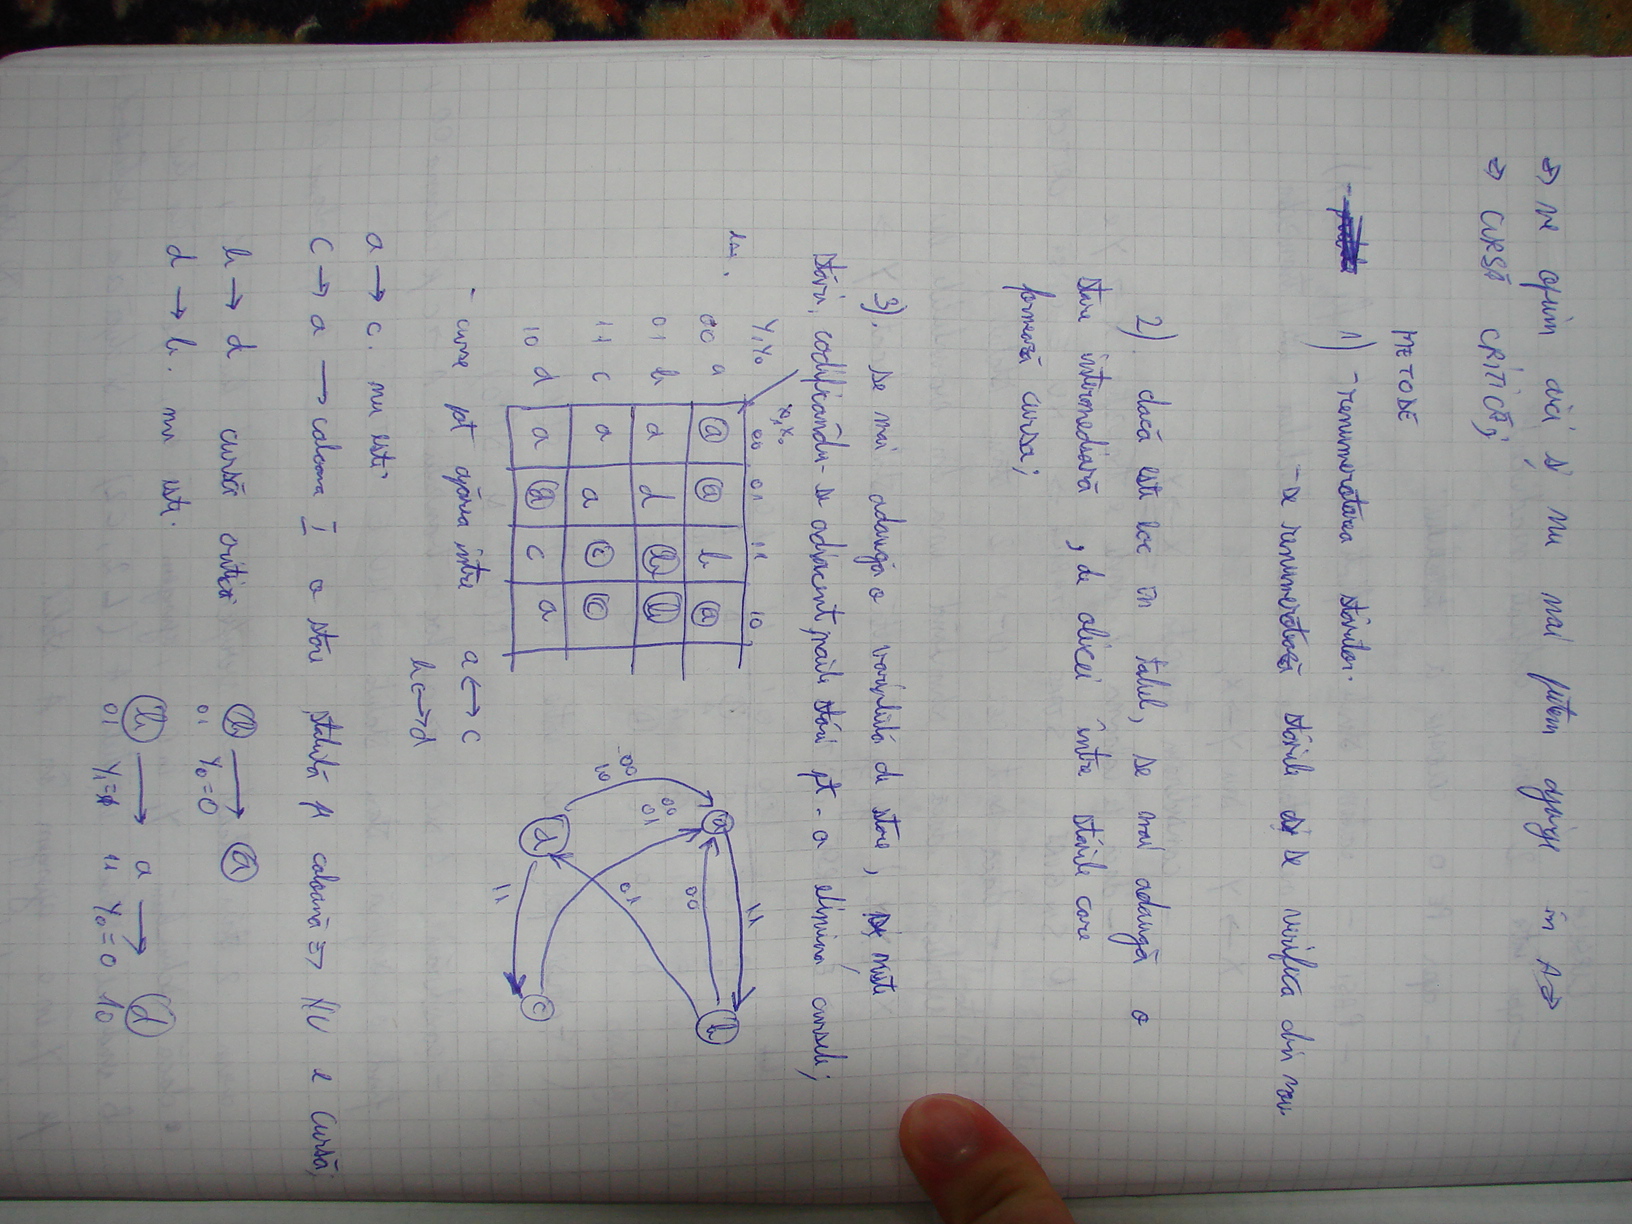 ⇒ ne oprim aici și nu mai putem ajunge în A ⇒
⇒ CURSĂ CRITICĂ;
METODE
1) - renumerotarea stărilor.
- se renumerotează stările și se verifică din nou.
2). dacă este loc în tabel, se mai adaugă o
stare intermediară, de obicei între stările care
formează cursa;
3). se mai adaugă o variabilă de stare,
stări, codificându-se adiacent noile stări pt. a elimina cursele;
Y₁Y₀ X₁X₀ 00 01 11 10
00 a a a b a
01 b a d b b
11 c a a c c
10 d a d c a
00 10
00 01
11
00
01
11
a b c d
- curse pt ajunge între a ↔ c
b ↔ d
a → c. nu este
c → a → coloana I o stare stabilă pe coloană ⇒ NU e cursă;
b → d cursă critică
d → b. nu este.
b → a
01 Y₀=0
b → a → d
01 Y₁=1 11 Y₀=0 10